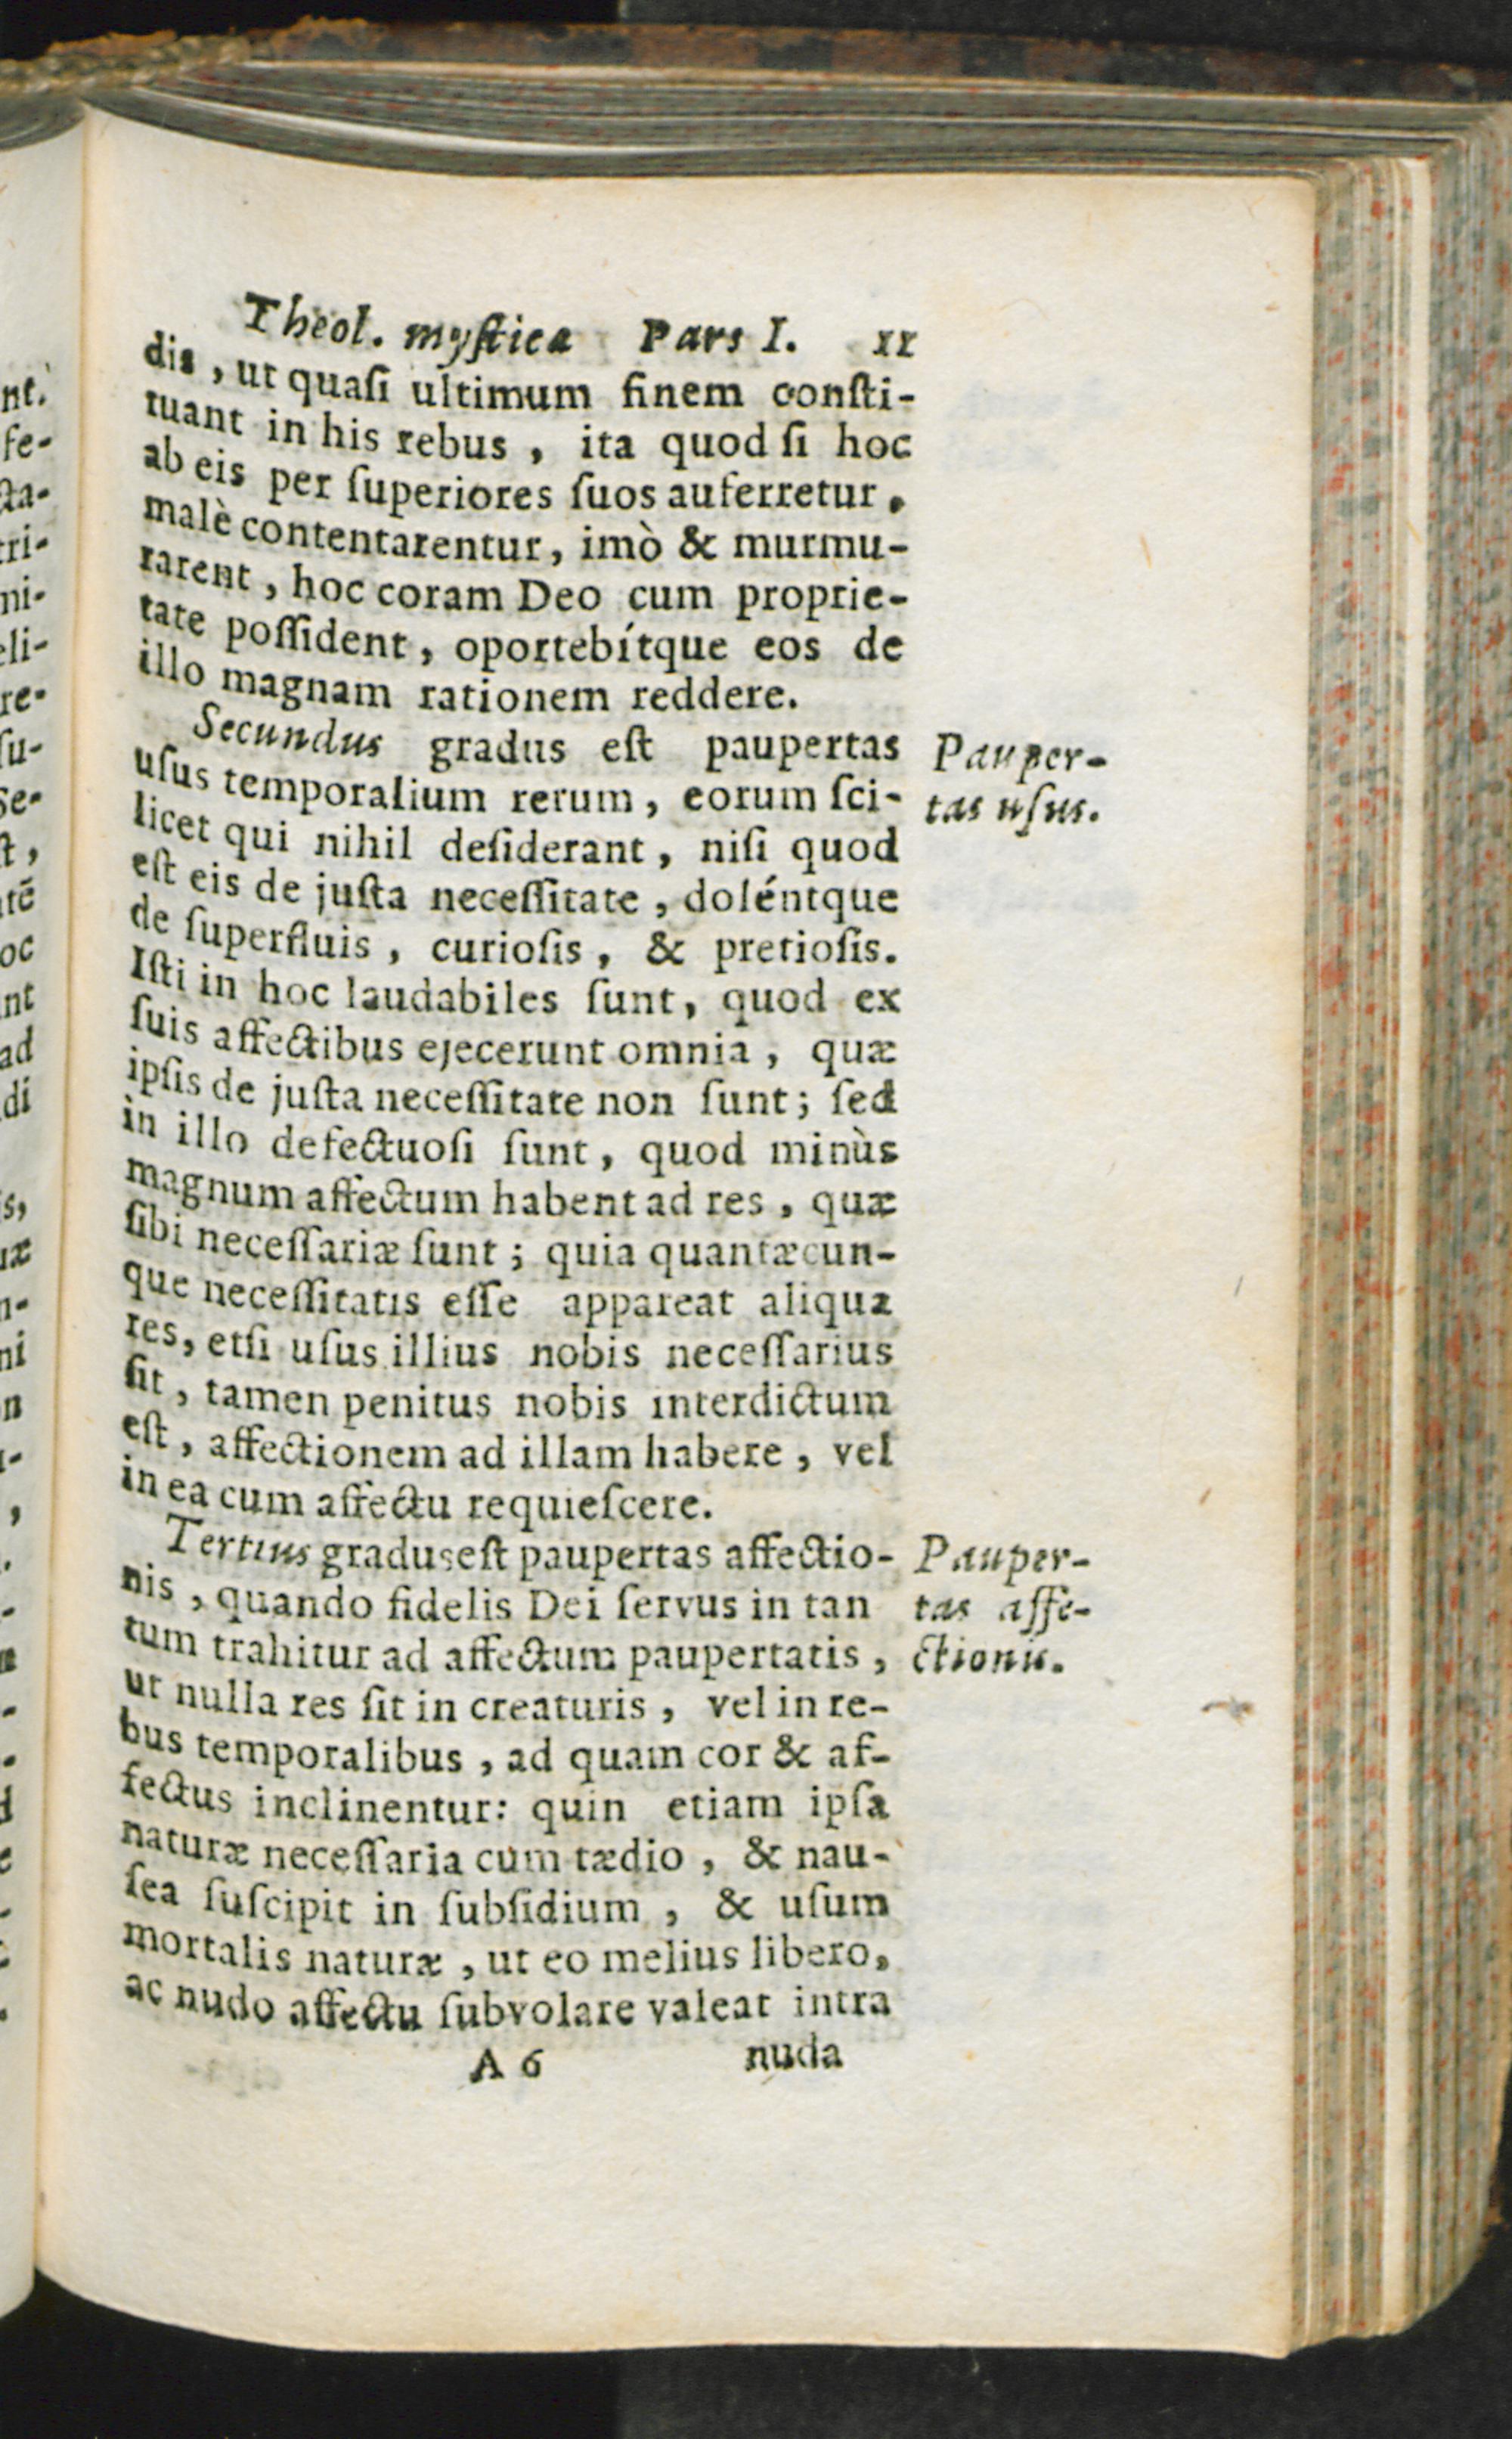 Theol. mystica Pars I. 11
dis, ut quaſi ultimum finem conſti-
tuant in his rebus, ita quod ſi hoc
ab eis per ſuperiores ſuos auferretur,
malè contentarentur, imò & murmu-
rarent, hoc coram Deo cum proprie-
tate poſſident, oportebítque eos de
illo magnam rationem reddere.
Secundus gradus eſt paupertas
uſus temporalium rerum, eorum ſci-
licet qui nihil deſiderant, niſi quod
eſt eis de juſta neceſſitate, doléntque
de ſuperfluis, curioſis, & pretioſis.
Iſti in hoc laudabiles ſunt, quod ex
ſuis affectibus ejecerunt omnia, quæ
ipſis de juſta neceſſitate non ſunt; ſed
in illo defectuoſi ſunt, quod minùs
magnum affectum habent ad res, quæ
ſibi neceſſariæ ſunt; quia quantæcun-
que neceſſitatis eſſe appareat aliqua
res, etſi uſus illius nobis neceſſarius
ſit, tamen penitus nobis interdictum
eſt, affectionem ad illam habere, vel
in ea cum affectu requieſcere.
Tertius gradus eſt paupertas affectio-
nis, quando fidelis Dei ſervus in tan
tum trahitur ad affectum paupertatis,
ut nulla res ſit in creaturis, vel in re-
bus temporalibus, ad quam cor & af-
fectus inclinentur: quin etiam ipſa
naturæ neceſſaria cum tædio, & nau-
ſea ſuſcipit in ſubſidium, & uſum
mortalis naturæ, ut eo melius libero,
ac nudo affectu ſubvolare valeat intra
A 6 nuda
Pauper-
tas uſus.
Pauper-
tas affe-
ctionis.
nt.
fe-
cta-
tri-
ni-
eli-
re-
ſu-
ſt,
tē
oc
nt
ad
di
s,
ni
n